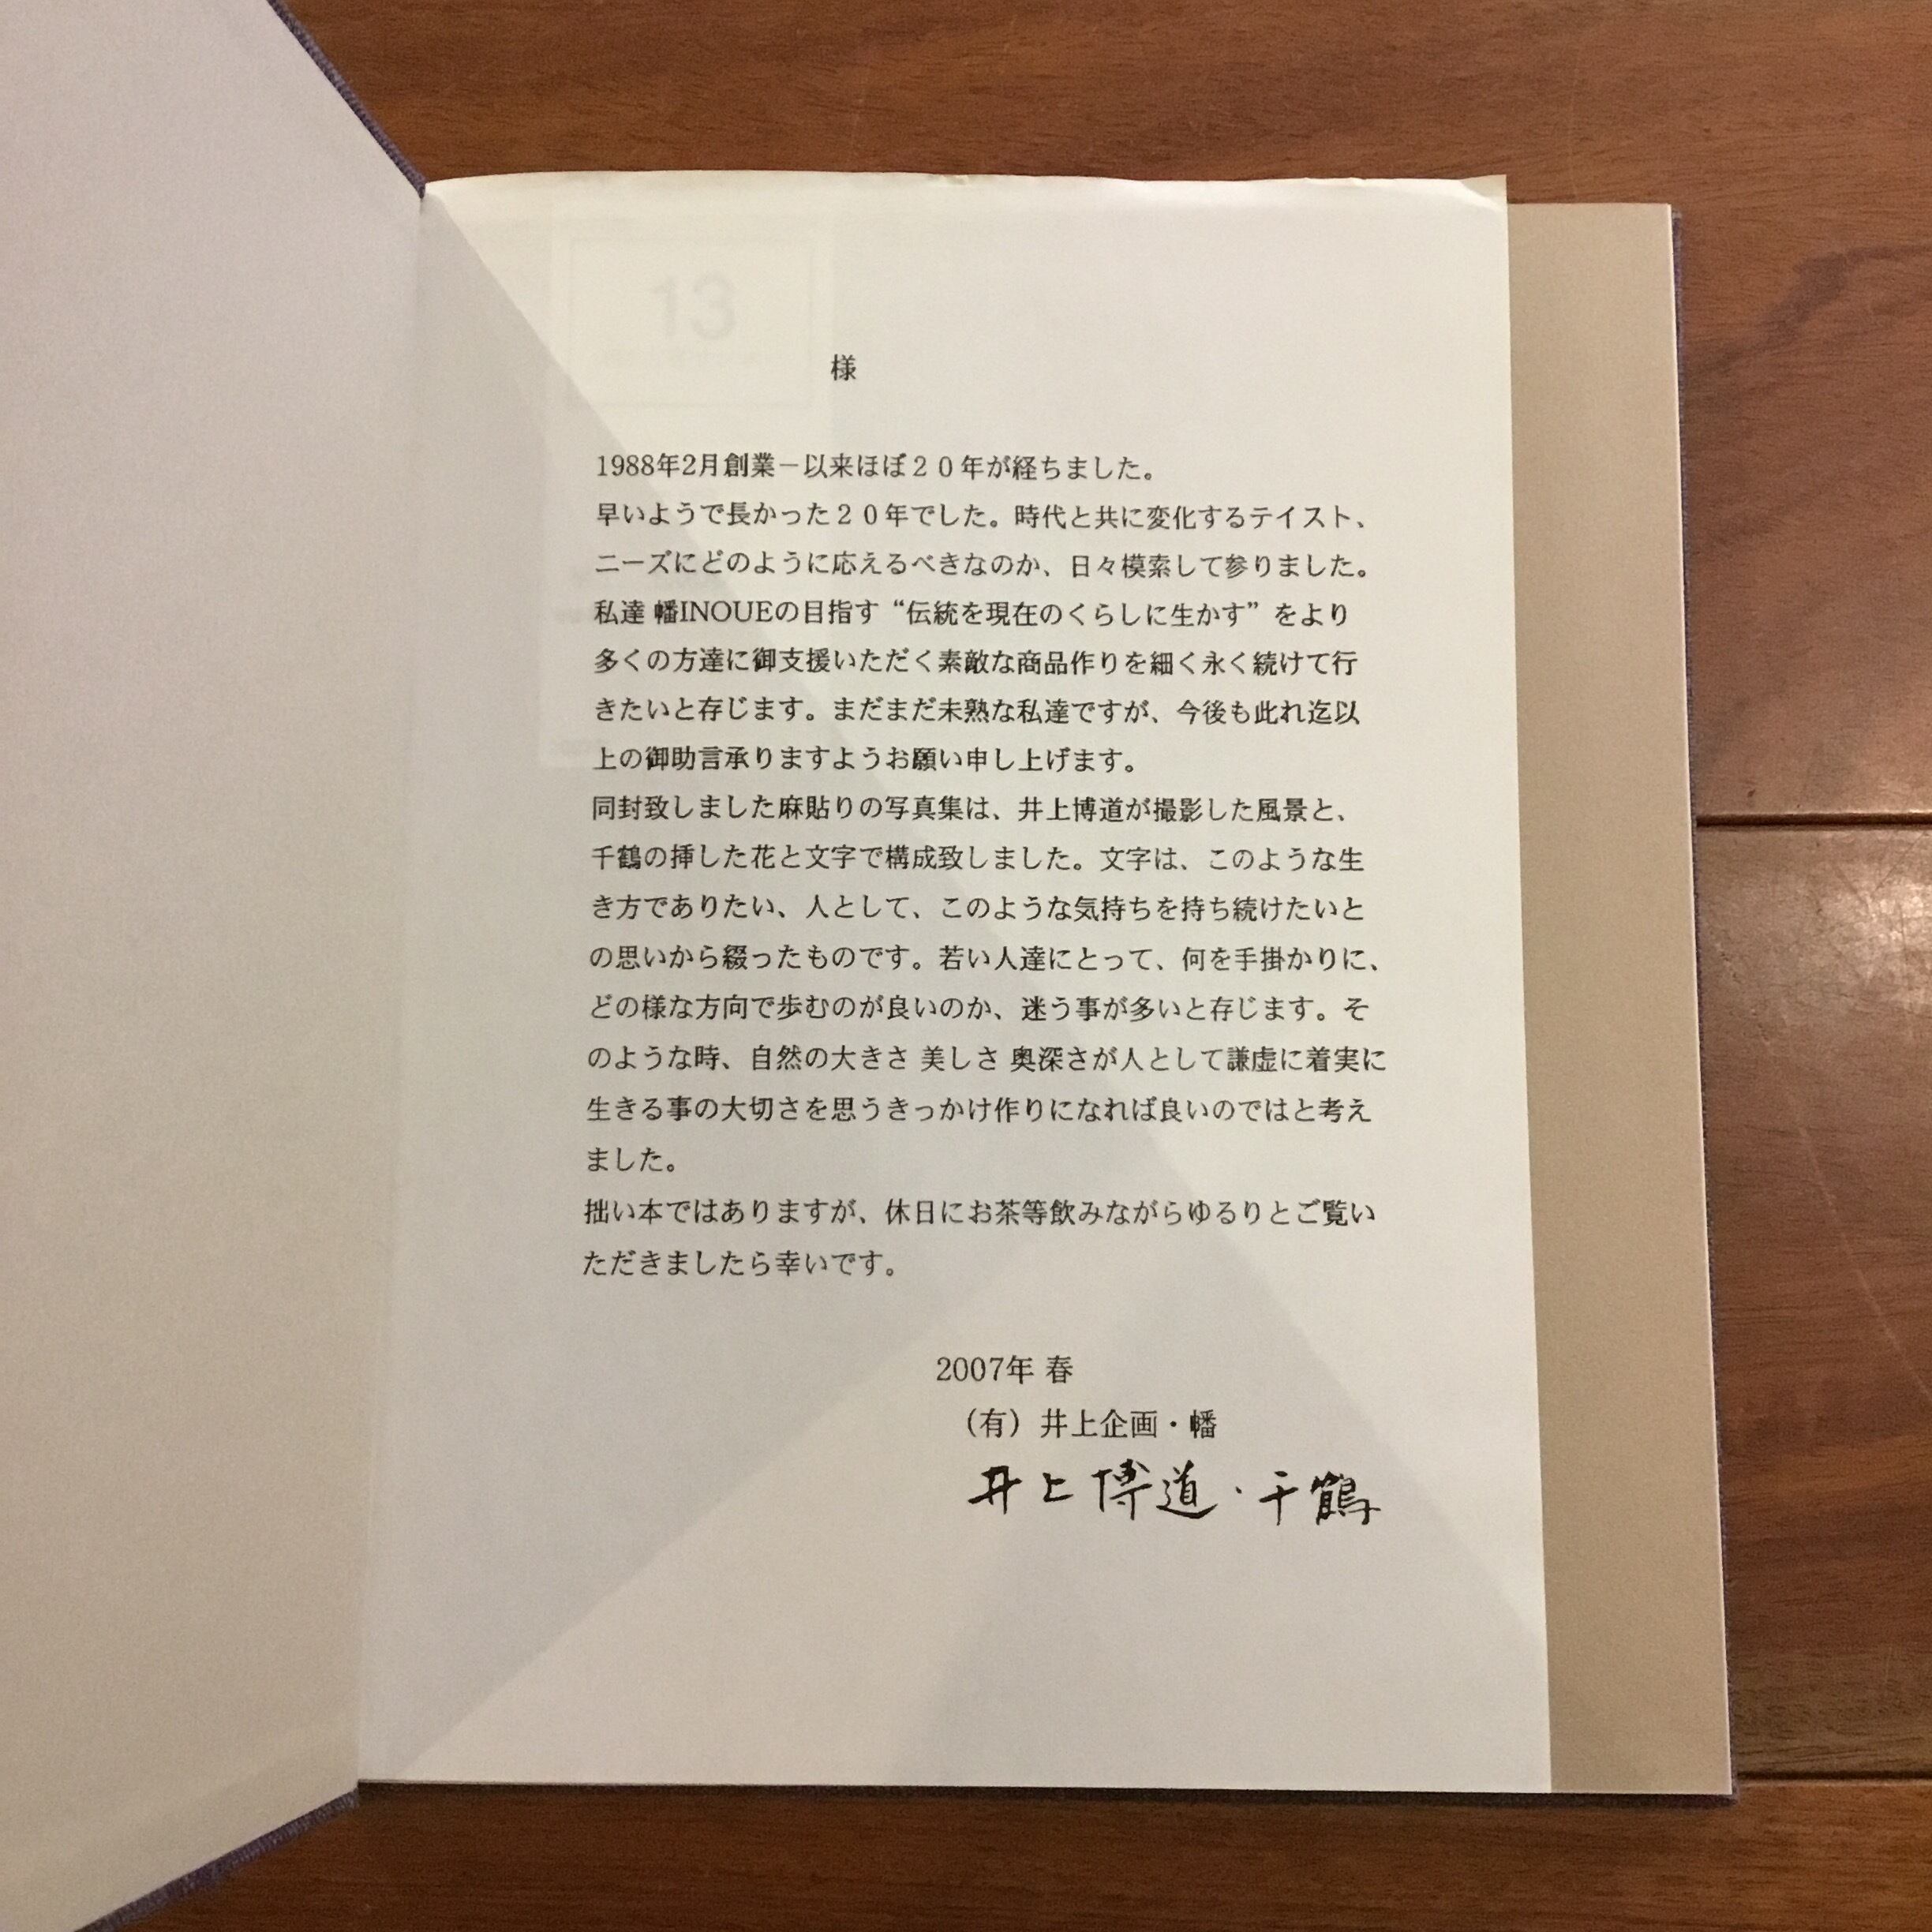 13
様
1988年2月創業－以来ほぼ２０年が経ちました。
早いようで長かった２０年でした。時代と共に変化するテイスト、
ニーズにどのように応えるべきなのか、日々模索して参りました。
私達 幡INOUEの目指す“伝統を現在のくらしに生かす”をより
多くの方達に御支援いただく素敵な商品作りを細く永く続けて行
きたいと存じます。まだまだ未熟な私達ですが、今後も此れ迄以
上の御助言承りますようお願い申し上げます。
同封致しました麻貼りの写真集は、井上博道が撮影した風景と、
千鶴の挿した花と文字で構成致しました。文字は、このような生
き方でありたい、人として、このような気持ちを持ち続けたいと
の思いから綴ったものです。若い人達にとって、何を手掛かりに、
どの様な方向で歩むのが良いのか、迷う事が多いと存じます。そ
のような時、自然の大きさ 美しさ 奥深さが人として謙虚に着実に
生きる事の大切さを思うきっかけ作りになれば良いのではと考え
ました。
拙い本ではありますが、休日にお茶等飲みながらゆるりとご覧い
ただきましたら幸いです。
2007年 春
（有）井上企画・幡
井上博道・千鶴